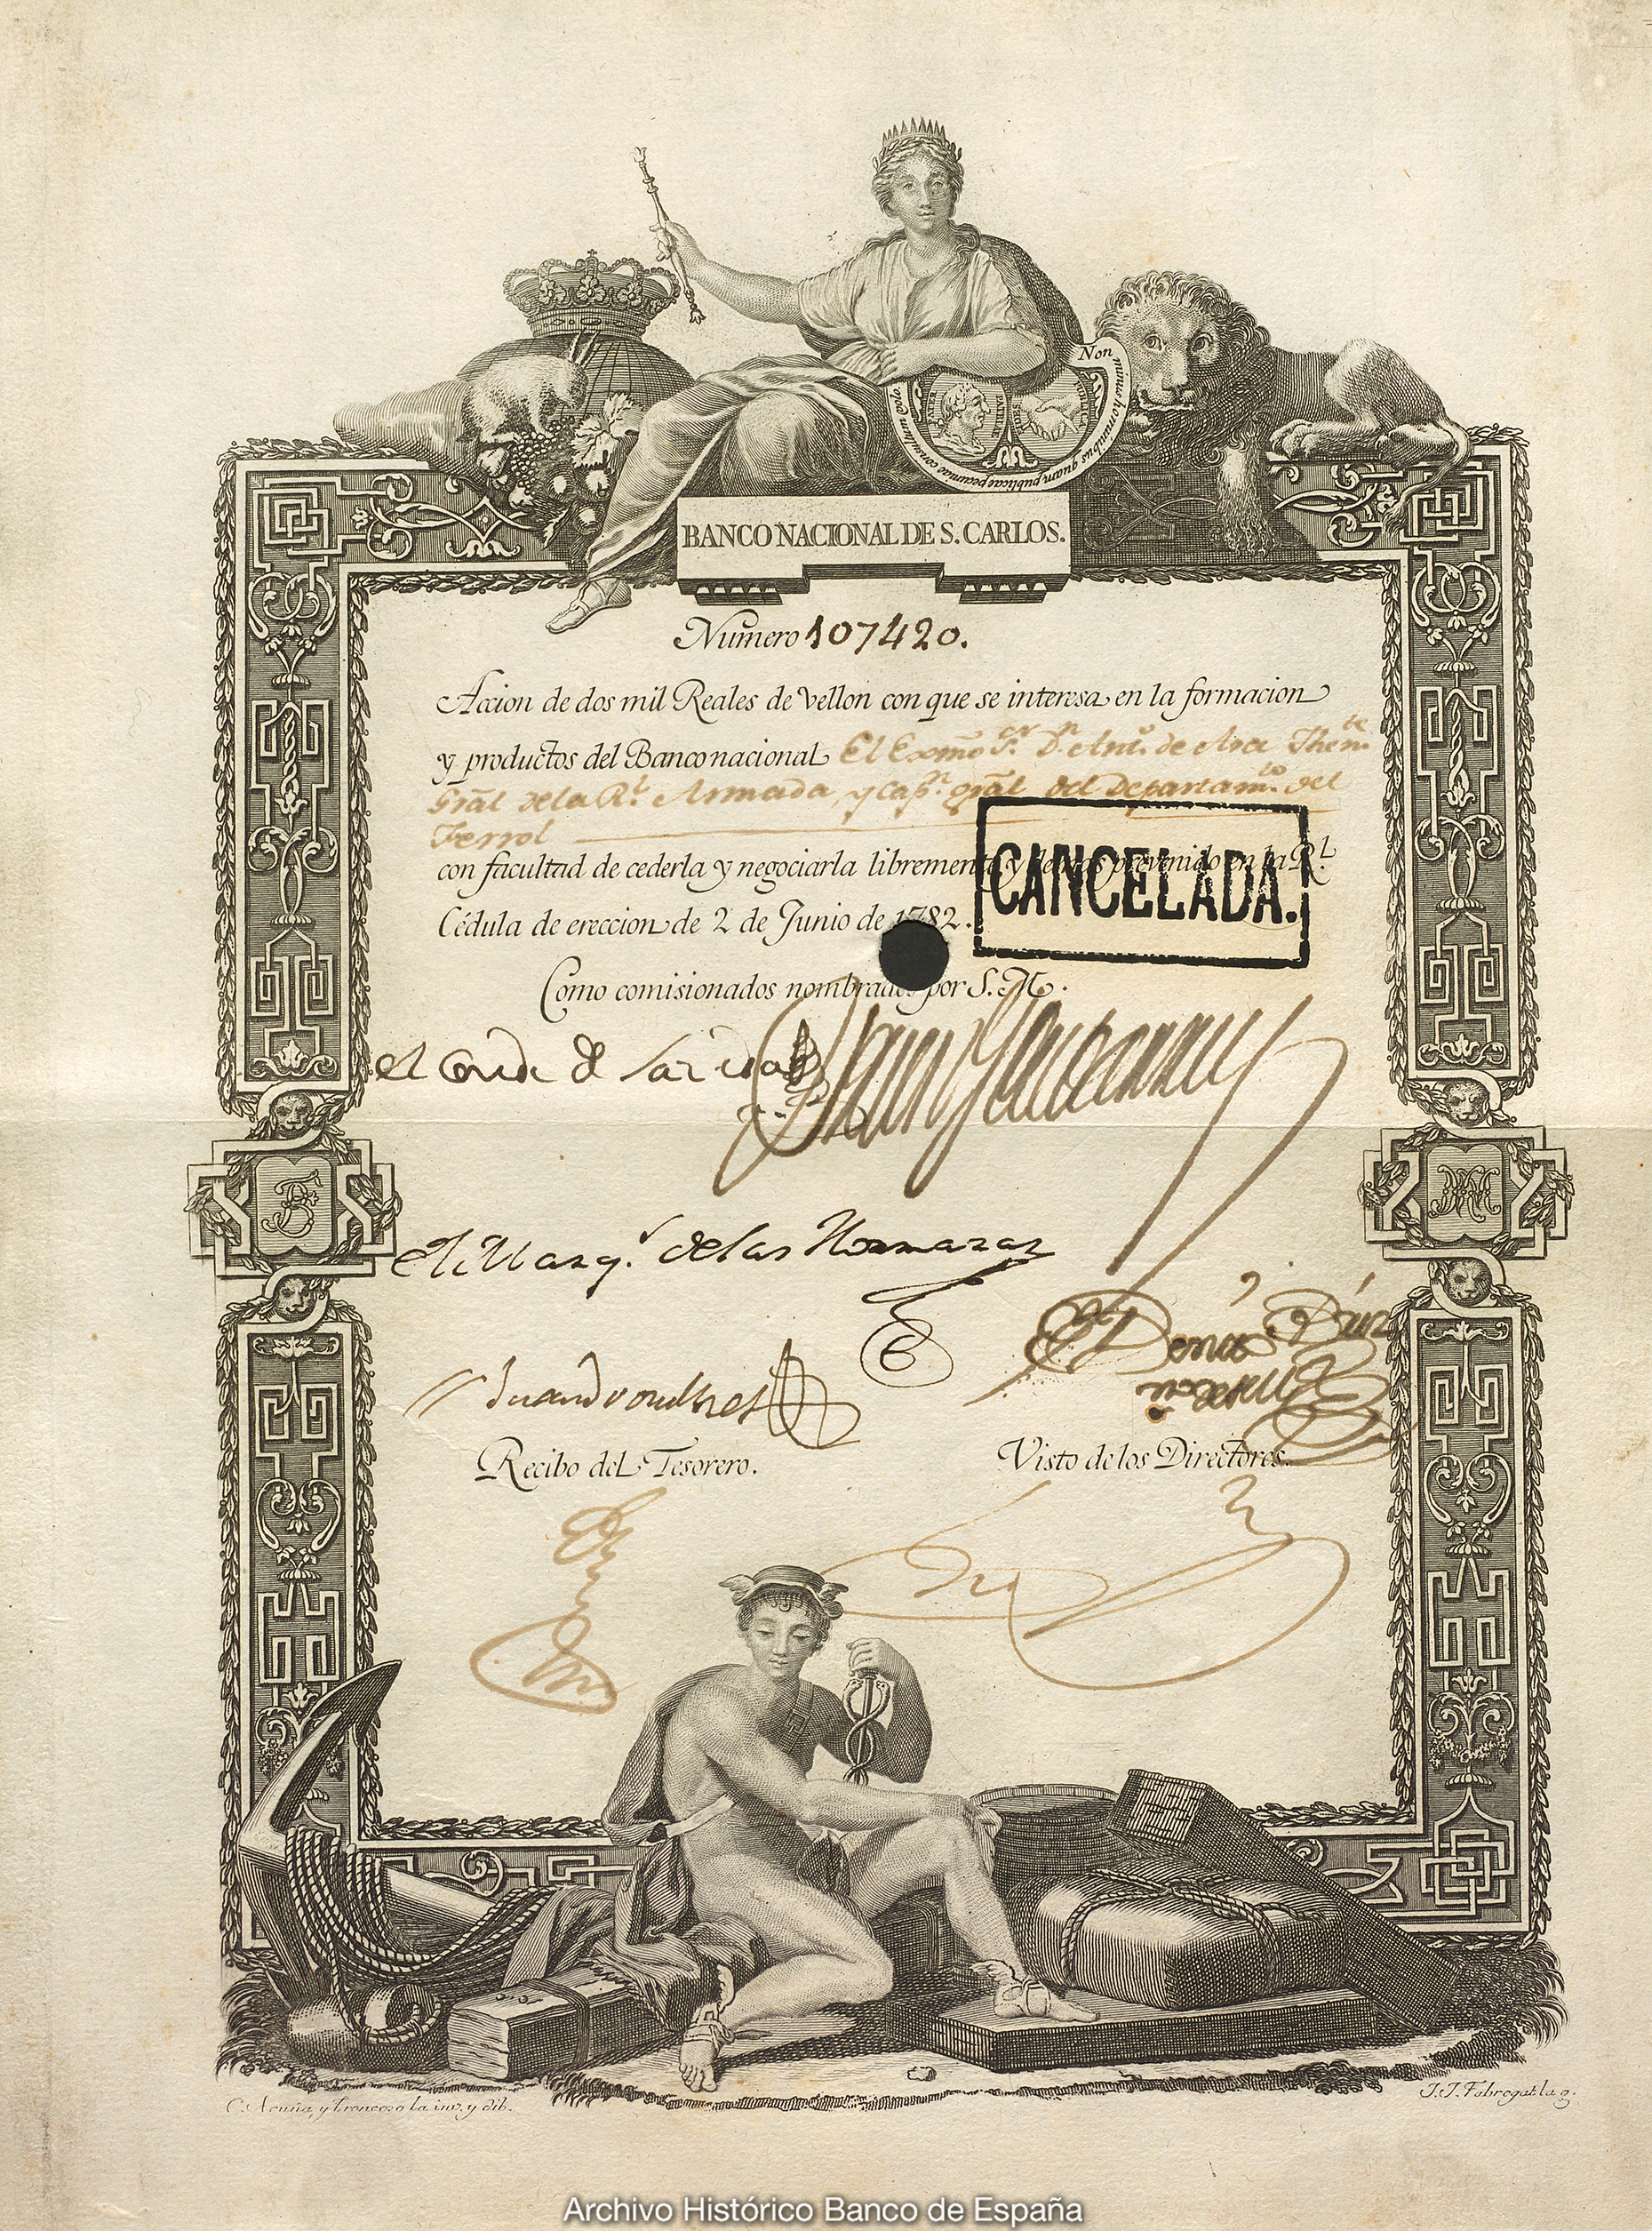 Non minus hominibus quam publicae pecuniae consultum volo
PATER PATRIAE
BANCO NACIONAL DE S. CARLOS.
Numero 107420.
Accion de dos mil Reales de vellon con que se interesa en la formacion
y productos del Banco nacional El Exmo Sr. Dn. Anto. de Arce Thente.
Gral de la Rl. Armada, y Capn. gral del Departamto. del
Ferrol
con facultad de cederla y negociarla libremente y demas prevenido en la Rl.
CANCELADA.
Cédula de ereccion de 2 de Junio de 1782.
Como comisionados nombrados por S. M.
el Conde de
el Marqs. de las Hormazas
Juan Droulhet
Recibo del Tesorero.
Visto de los Directores.
C. Acuña, y Troncoso la inv. y dib.
J. J. Fabregat la g.
Archivo Histórico Banco de España